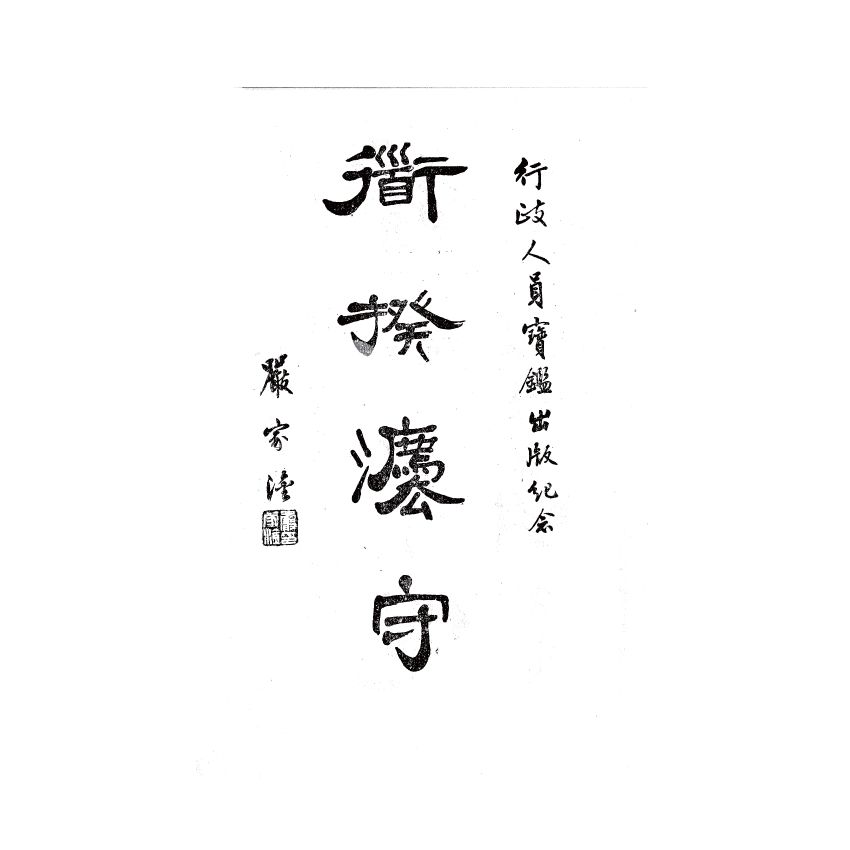 行政人員寶鑑出版紀念
衟揆灋守
嚴家淦